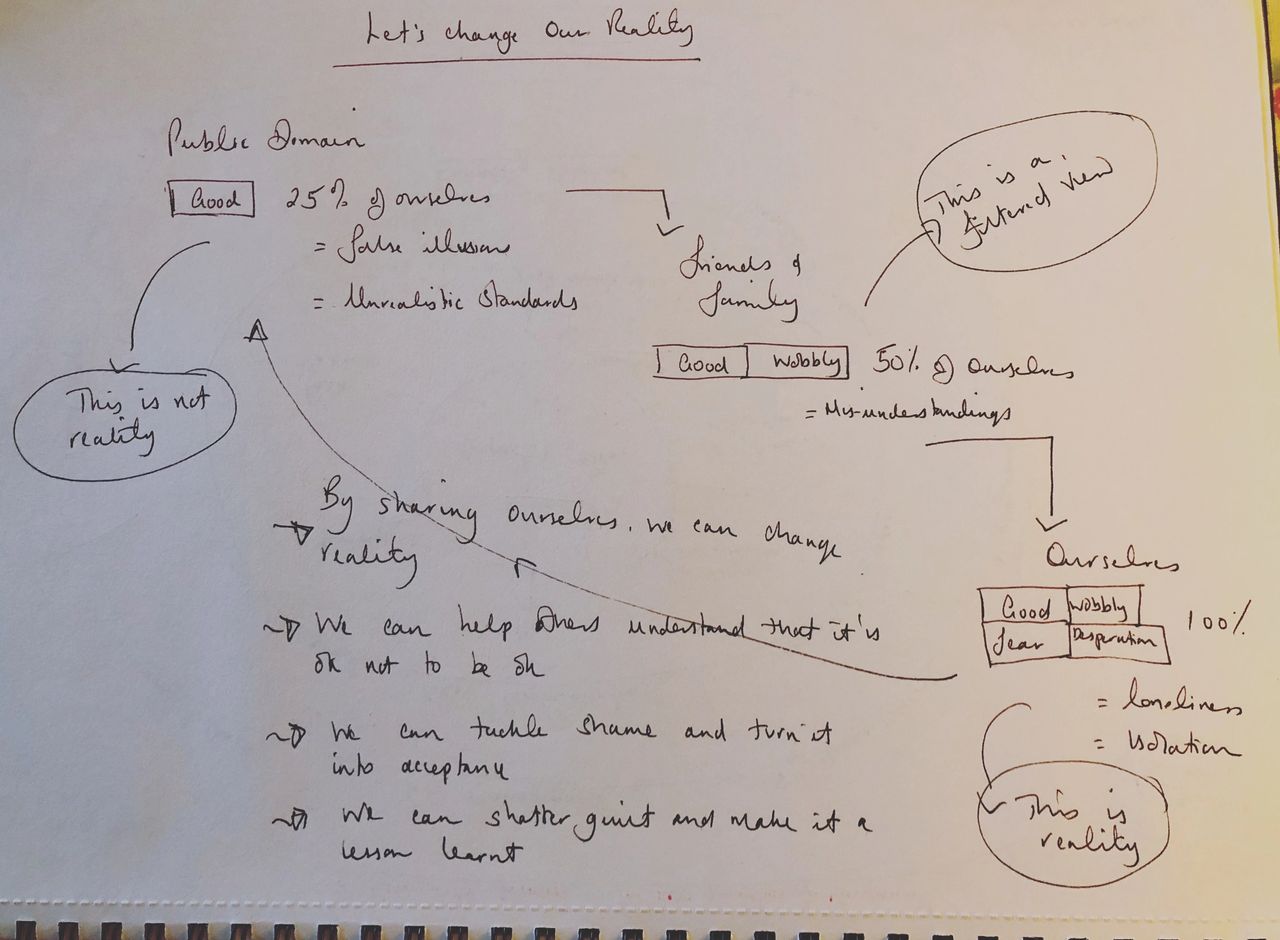 Let's change Our Reality
Public Domain
Good 25% of ourselves
= false illusion
= Unrealistic Standards
This is not
reality
friends &
family
Good Wobbly 50% of Ourselves
= Mis-understandings
This is a
filtered view
Ourselves
Good Wobbly 100%
fear Desperation
= loneliness
= Isolation
This is
reality
By sharing ourselves, we can change
reality
We can help Others understand that it's
ok not to be ok
We can tackle shame and turn it
into acceptance
We can shatter guilt and make it a
lesson learnt